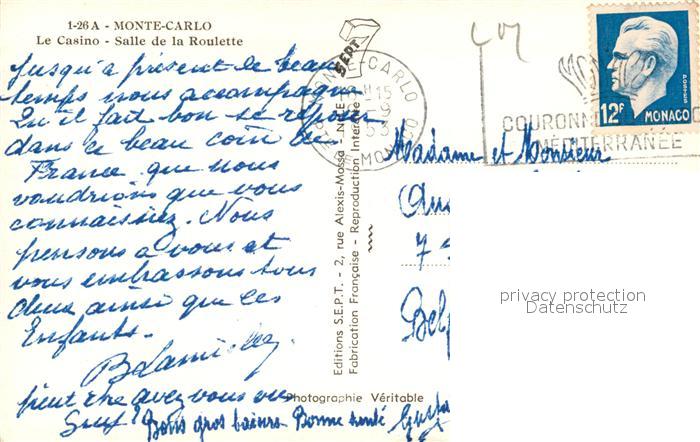 1-26A - MONTE-CARLO
Le Casino - Salle de la Roulette
Jusqu'à présent le beau
temps nous accompagne
Qu'il fait bon se reposer
dans ce beau coin de
France que nous
voudrions que vous
connaissiez. Nous
pensons à vous et
vous embrassons tous
deux ainsi que les
Enfants.
peut être avez vous vu
Bons gros baisers Bonne santé
Editions S.E.P.T. - 2, rue Alexis-Mossa - NICE
Fabrication Française - Reproduction Interdite
SEPT
Photographie Véritable
MONTE-CARLO
15
9
53
MONACO
COURONN
MÉDITERRANÉE
12F
MONACO
Madame et Monsieur
7
Bel
privacy protection
Datenschutz